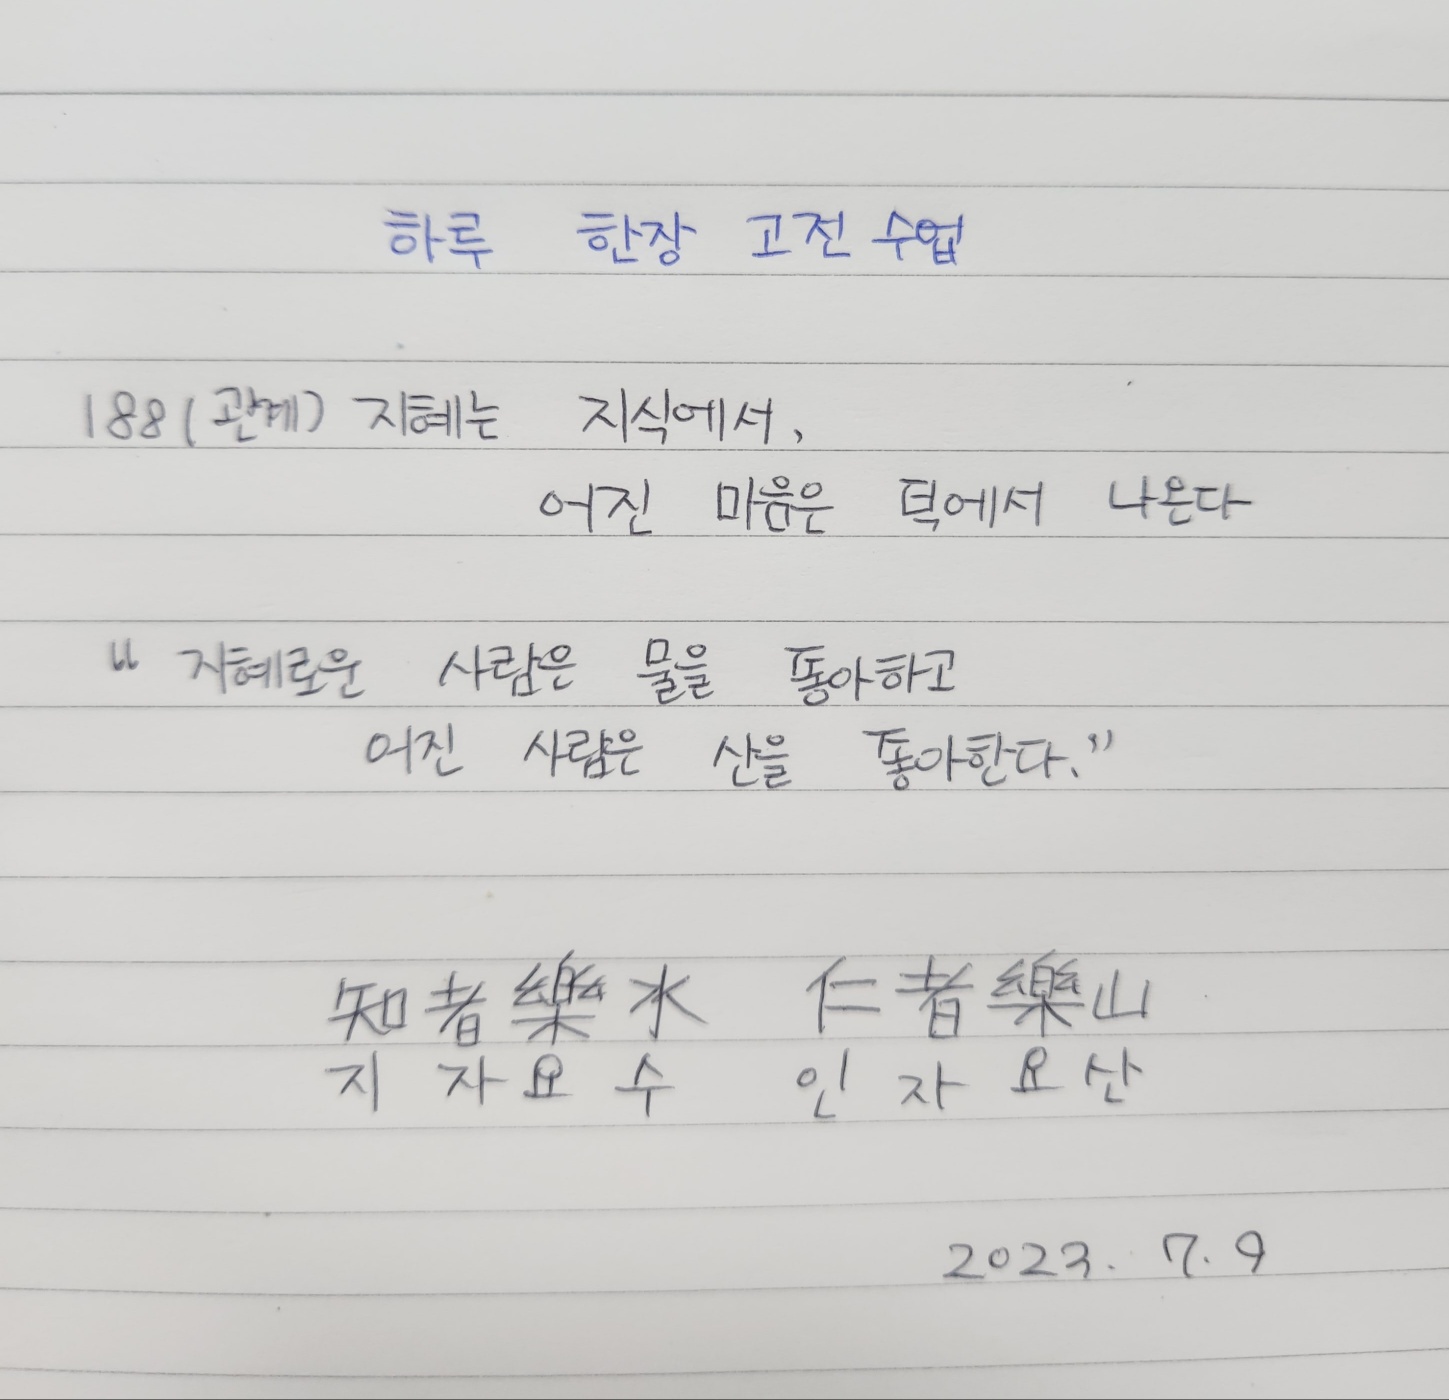 하루 한장 고전 수업
188(관계) 지혜는 지식에서,
어진 마음은 덕에서 나온다
“지혜로운 사람은 물을 좋아하고
어진 사람은 산을 좋아한다.”
知者樂水 仁者樂山
지자요수 인자요산
2023. 7. 9